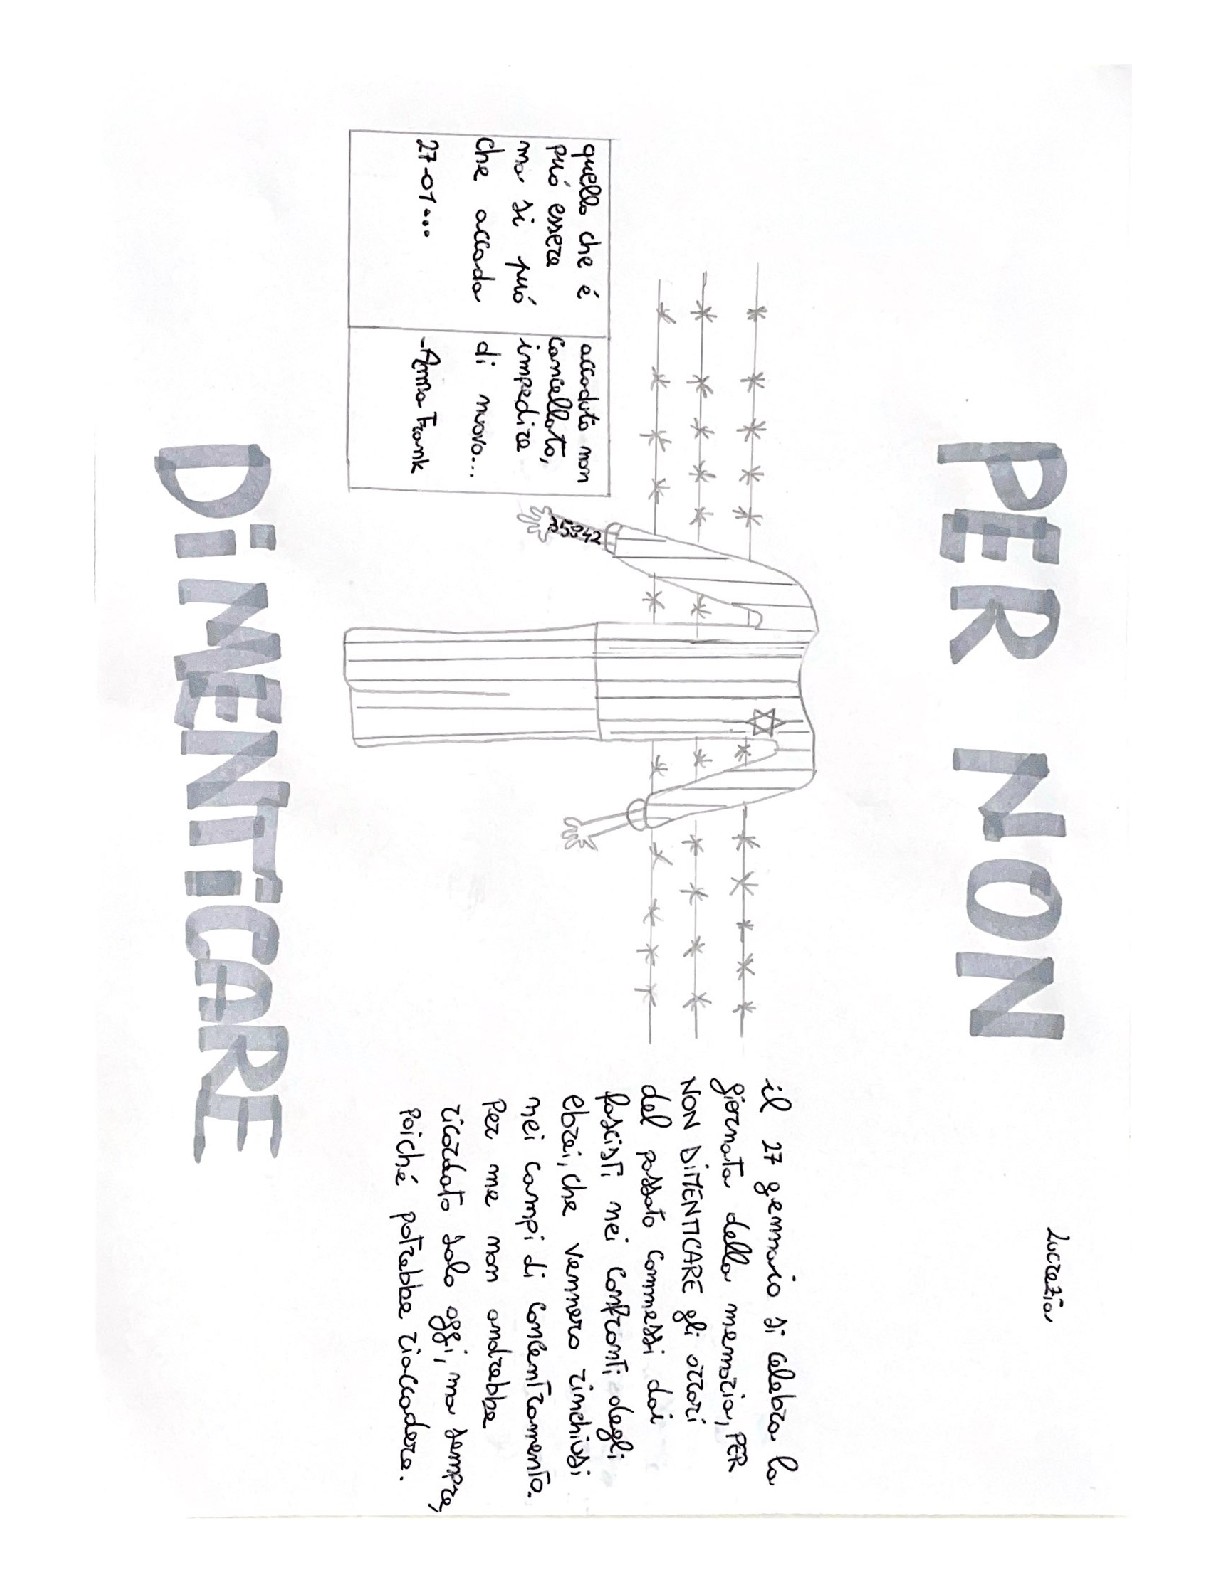 Lucrezia
PER NON
quello che é accaduto non
può essere cancellato,
ma si può impedire
che accada di nuovo...
27-01... -Anna Frank
35942
il 27 gennaio si celebra la
giornata della memoria, PER
NON DIMENTICARE gli orrori
del passato commessi dai
fascisti nei confronti degli
ebrei, che vennero rinchiusi
nei campi di concentramento.
Per me non andrebbe
ricordato solo oggi, ma sempre,
Poiché potrebbe riaccadere.
DiMENTICARE